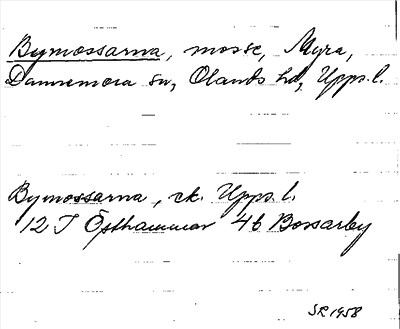 Bymossarna, mosse, Myra,
Dannemora sn, Olands hd, Upps. l.
Bymossarna, ek. Upps. l.
12 I Östhammar 4b Borsarby
SR 1958